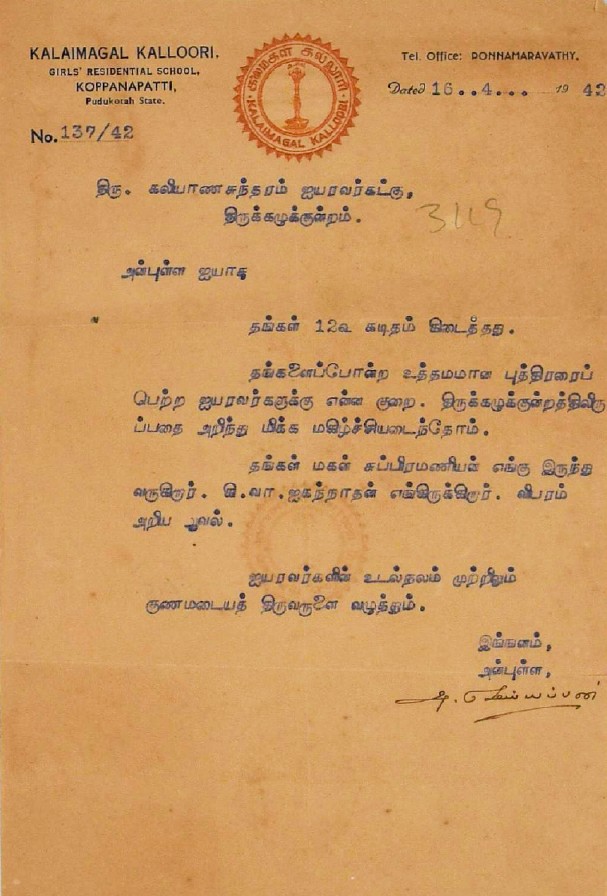 KALAIMAGAL KALLOORI.
GIRLS' RESIDENTIAL SCHOOL,
KOPPANAPATTI,
Pudukotah State.
No. 137/42
கலைமகள் கல்லூரி
KALAIMAGAL KALLOORI
Tel. Office: PONNAMARAVATHY.
Dated 16..4... 19 42
திரு. கலியாணசுந்தரம் ஐயரவர்கட்கு,
திருக்கழுக்குன்றம்.
3119
அன்புள்ள ஐயா
தங்கள் 12வ கடிதம் கிடைத்தது.
தங்களைப்போன்ற உத்தமமான புத்திரரைப்
பெற்ற ஐயரவர்களுக்கு என்ன குறை. திருக்கழுக்குன்றத்திலிரு
ப்பதை அறிந்து மிக்க மகிழ்ச்சியடைந்தோம்.
தங்கள் மகன் சுப்பிரமணியன் எங்கு இருந்து
வருகிறார். கி.வா.ஜகந்நாதன் எங்கிருக்கிறார். விபரம்
அறிய ஆவல்.
ஐயரவர்களின் உடல்தலம் முற்றிலும்
குணமடையத் திருவருளை வழுத்தும்.
இங்ஙனம்,
அன்புள்ள,